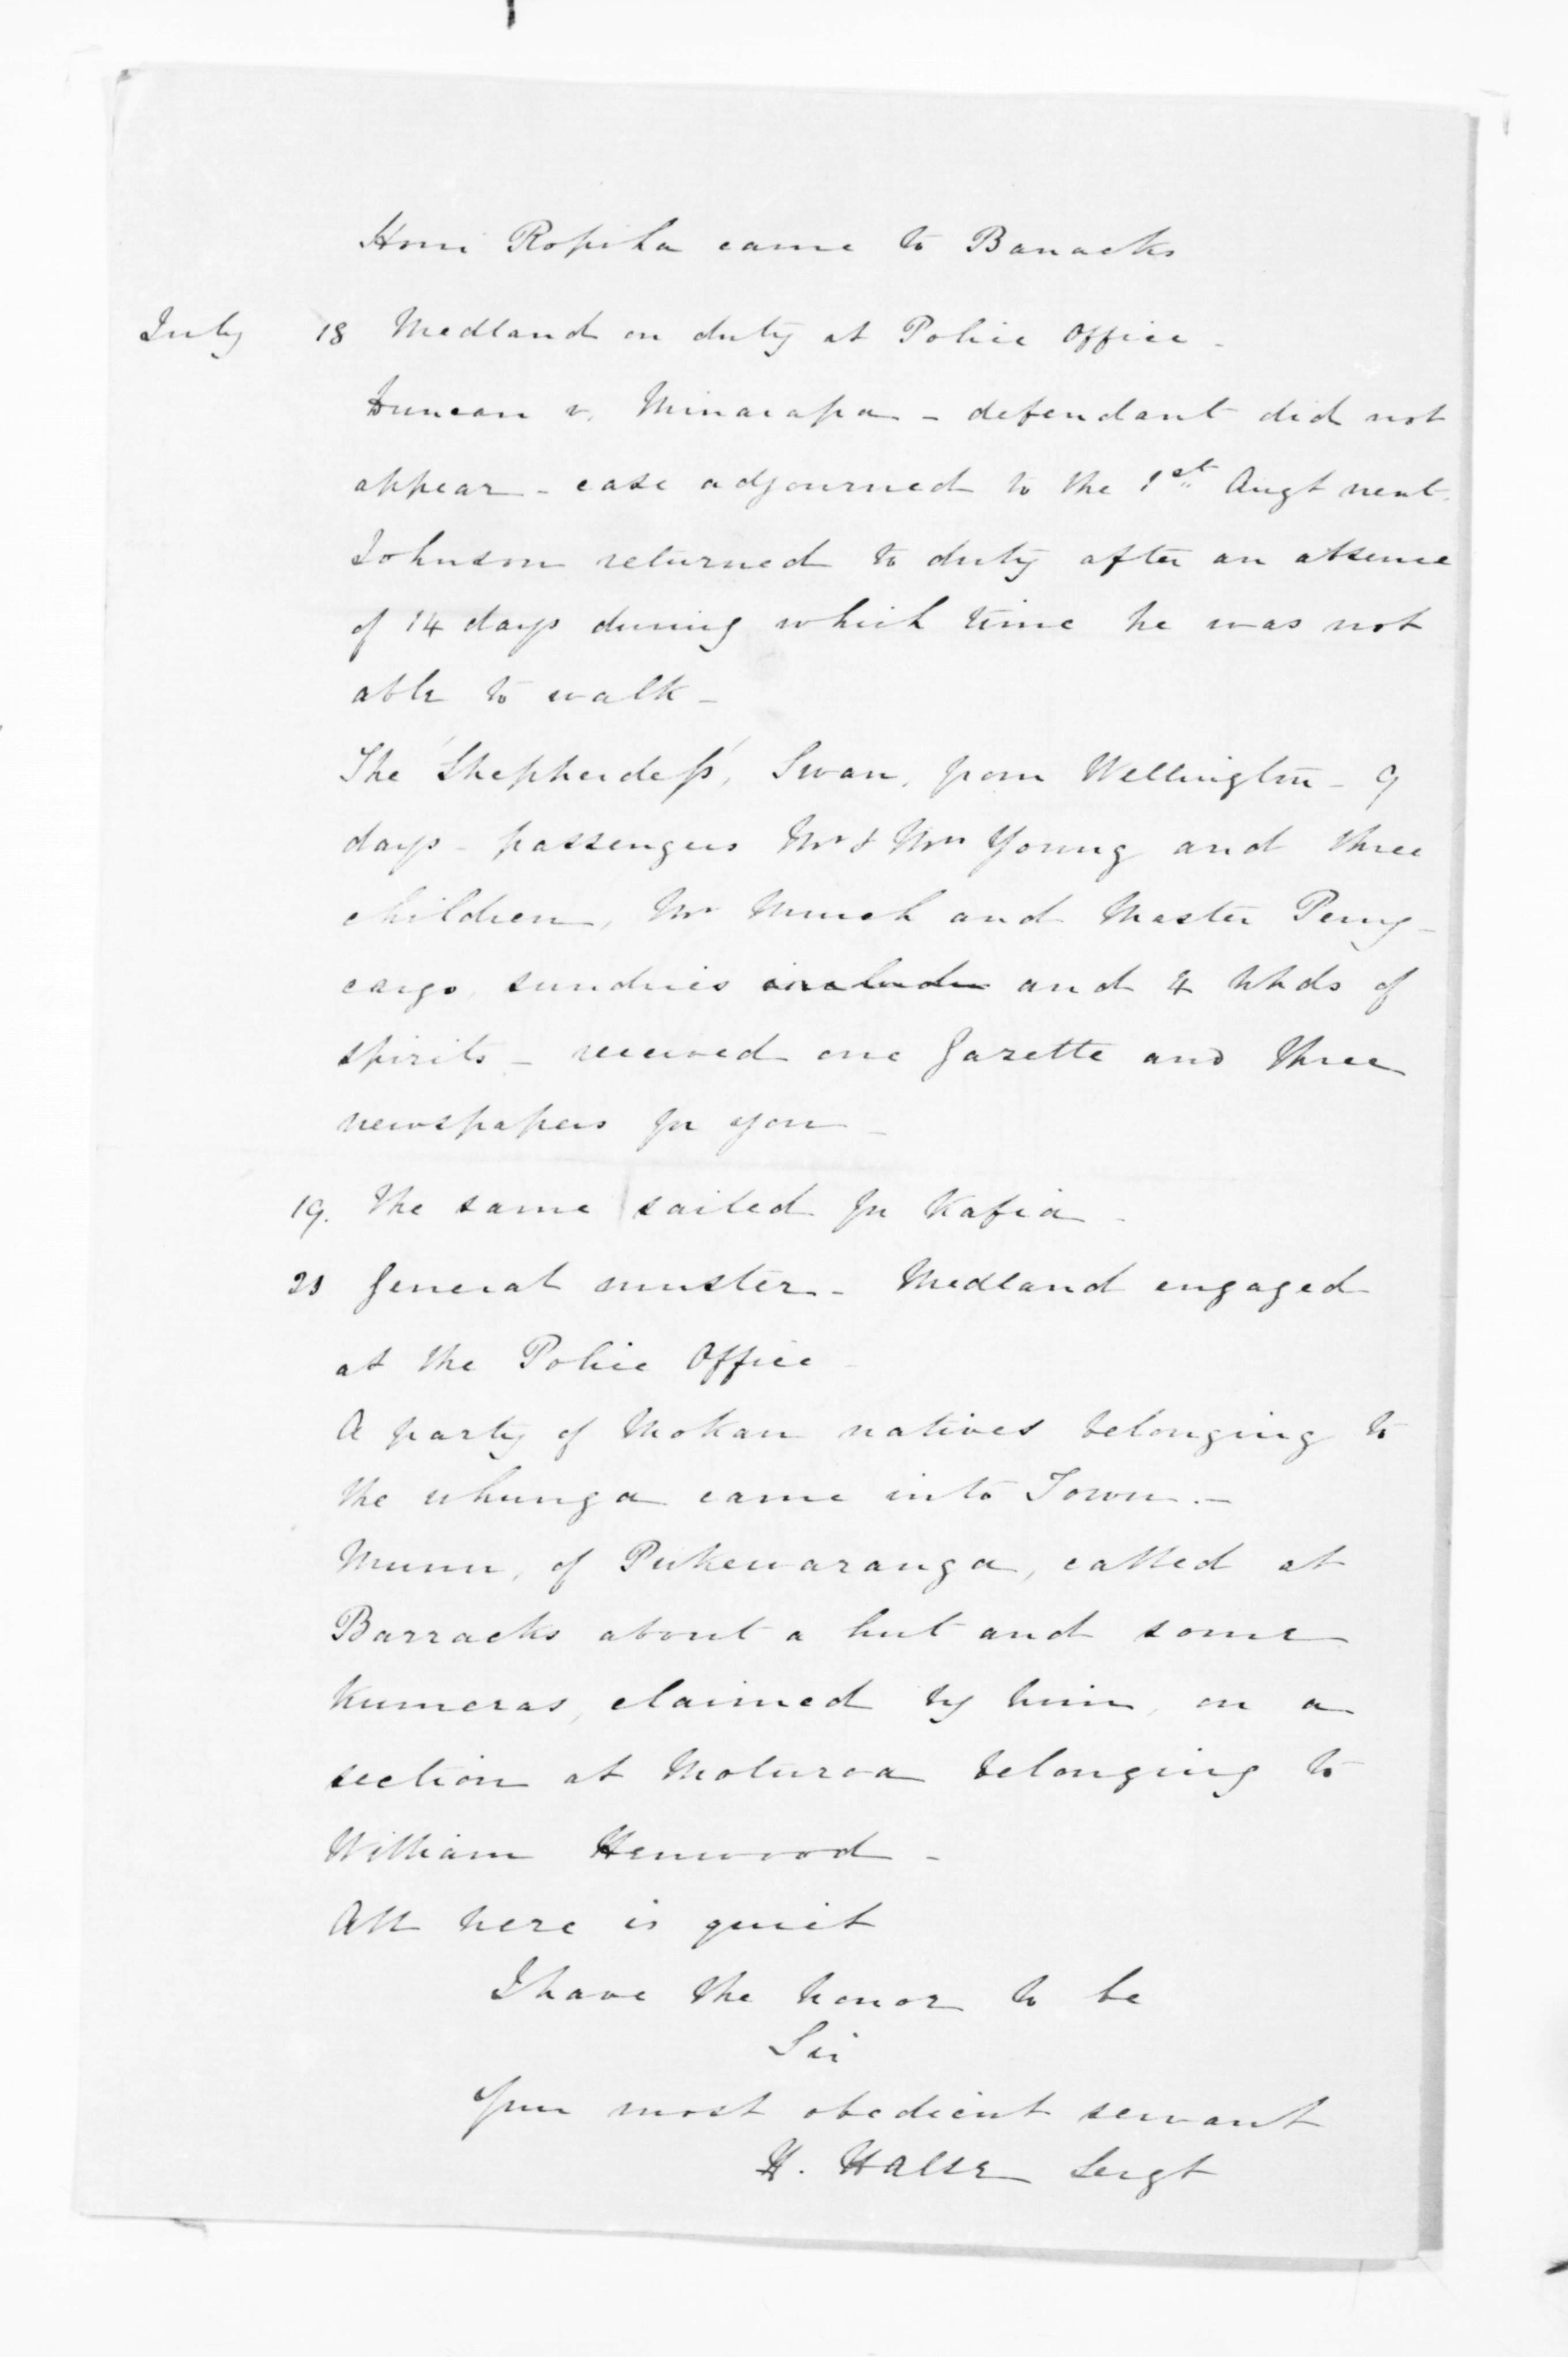 Honi Ropiha came to Barracks
July 18 Medland on duty at Police Office -
Duncan v. Minarapa - defendant did not
appear - case adjourned to the 1st Augt next.
Johnson returned to duty after an absence
of 14 days during which time he was not
able to walk -
The 'Shepherdess', Swan, from Wellington - 9
days - passengers Mr & Mrs Young and three
children, Mr Munch and Master Perry -
cargo, sundries include and 4 hhds of
spirits - received one Gazette and three
newspapers for you -
19. The same sailed for Kafia -
21 General muster - Medland engaged
at the Police Office -
A party of Mokau natives belonging to
the uhunga came into Town. -
Munu, of Pukewaranga, called at
Barracks about a hut and some
kumeras, claimed by him, on a
section at Moturoa belonging to
William Henwood -
All here is quiet
I have the honor to be
Sir
Your most obedient servant
H. Halse Sergt